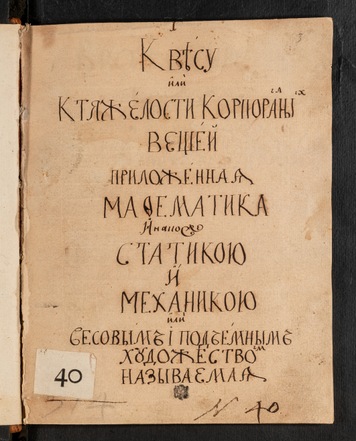 К вѣсу
или
К тяже́лости Корпоралны
вещеи́
приложе́нная
Маѳематика
Статикою
И
Механикою
или
весовы́мъ і подъе́мнымъ
художество^м
называемая
40
N 40